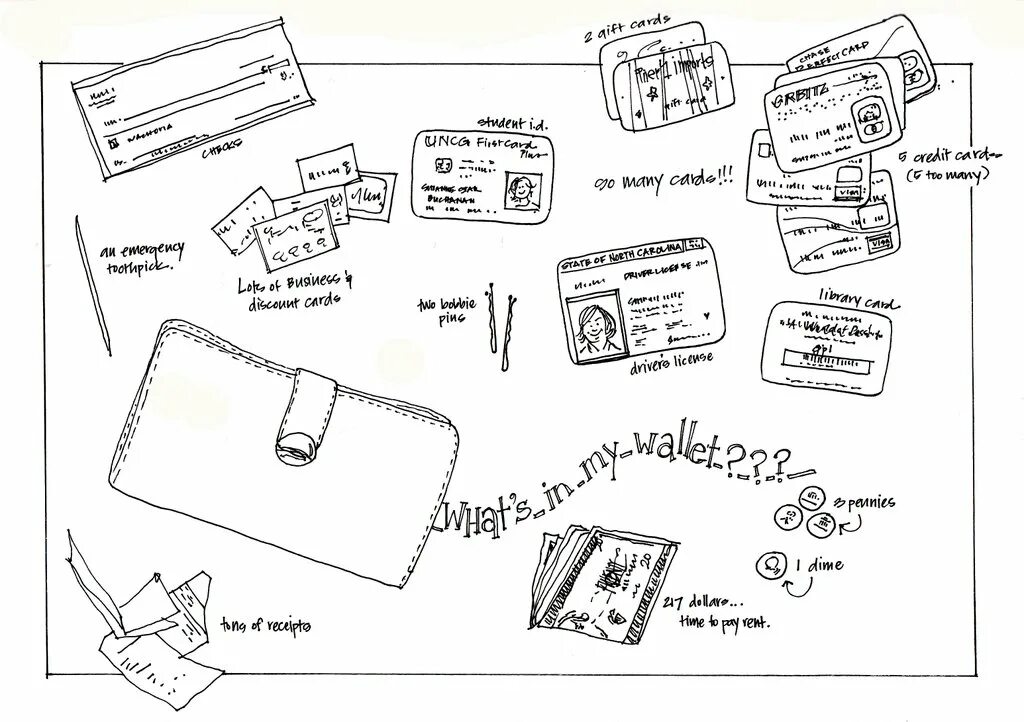 2 gift cards
Pier 1 imports
gift card
CHASE
PERFECT CARD
ORBITZ
VISA
VISA
5 credit cards
(5 too many)
$
WACHOVIA
CHECKS
student i.d.
UNCG FirstCard
Plus
BUCHANAN
so many cards!!!
an emergency
toothpick.
Lots of Business &
discount cards
two bobbie
pins
STATE OF NORTH CAROLINA
DRIVER LICENSE
driver's license
library card
gpl
What's in my wallet???
3 pennies
1 dime
20
217 dollars...
time to pay rent.
tons of receipts